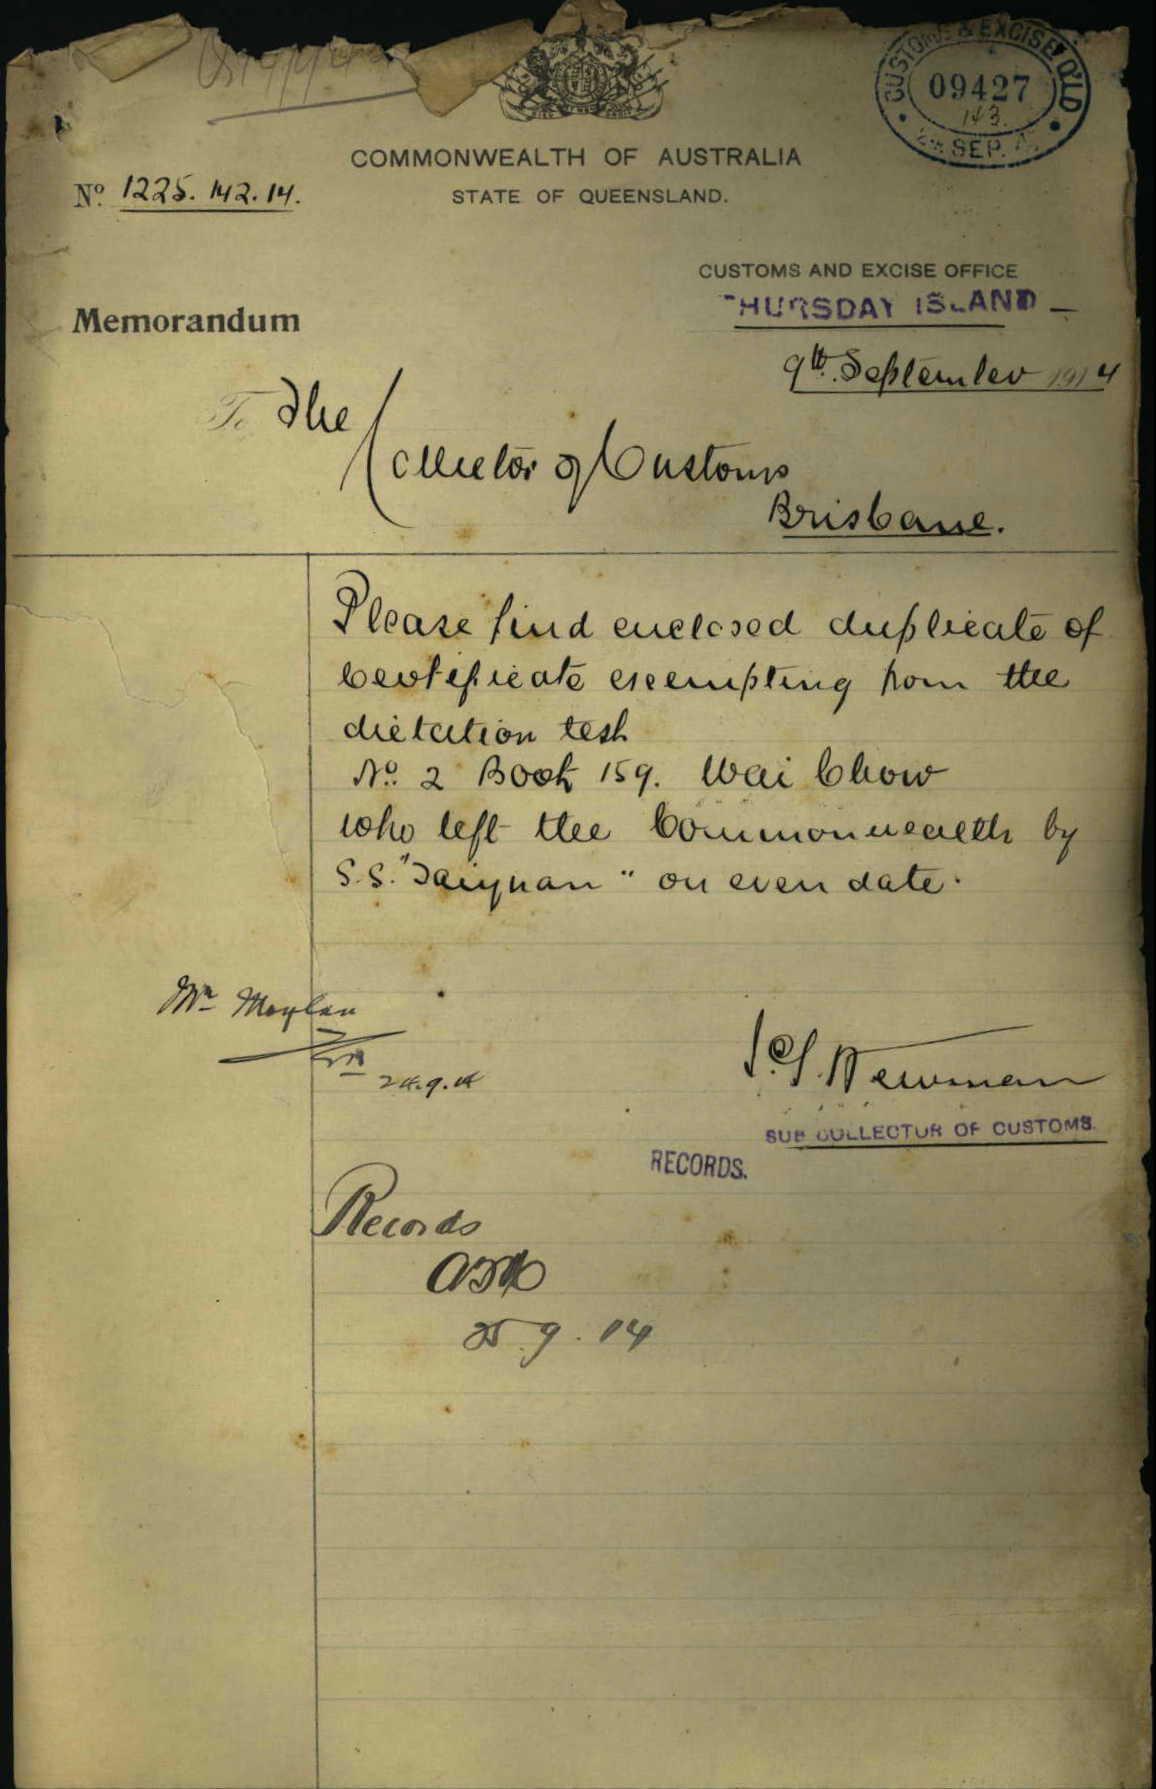 CUSTOMS & EXCISE Q'LD
09427
143.
SEP.
COMMONWEALTH OF AUSTRALIA
STATE OF QUEENSLAND.
Nº. 1225. 142. 14.
CUSTOMS AND EXCISE OFFICE
THURSDAY ISLAND
Memorandum
9th. September 1914
To The
Collector of Customs
Brisbane.
Please find enclosed duplicate of
Certificate exempting from the
dictation test
No. 2 Book 159. Wai Chow
who left the Commonwealth by
S.S. "Taiyuan" on even date.
Mr Moylan
24.9.14
Newman
SUB COLLECTOR OF CUSTOMS.
RECORDS.
Records
25.9.14